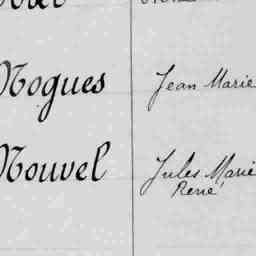 Nogues Jean Marie
Nouvel Jules Marie
René